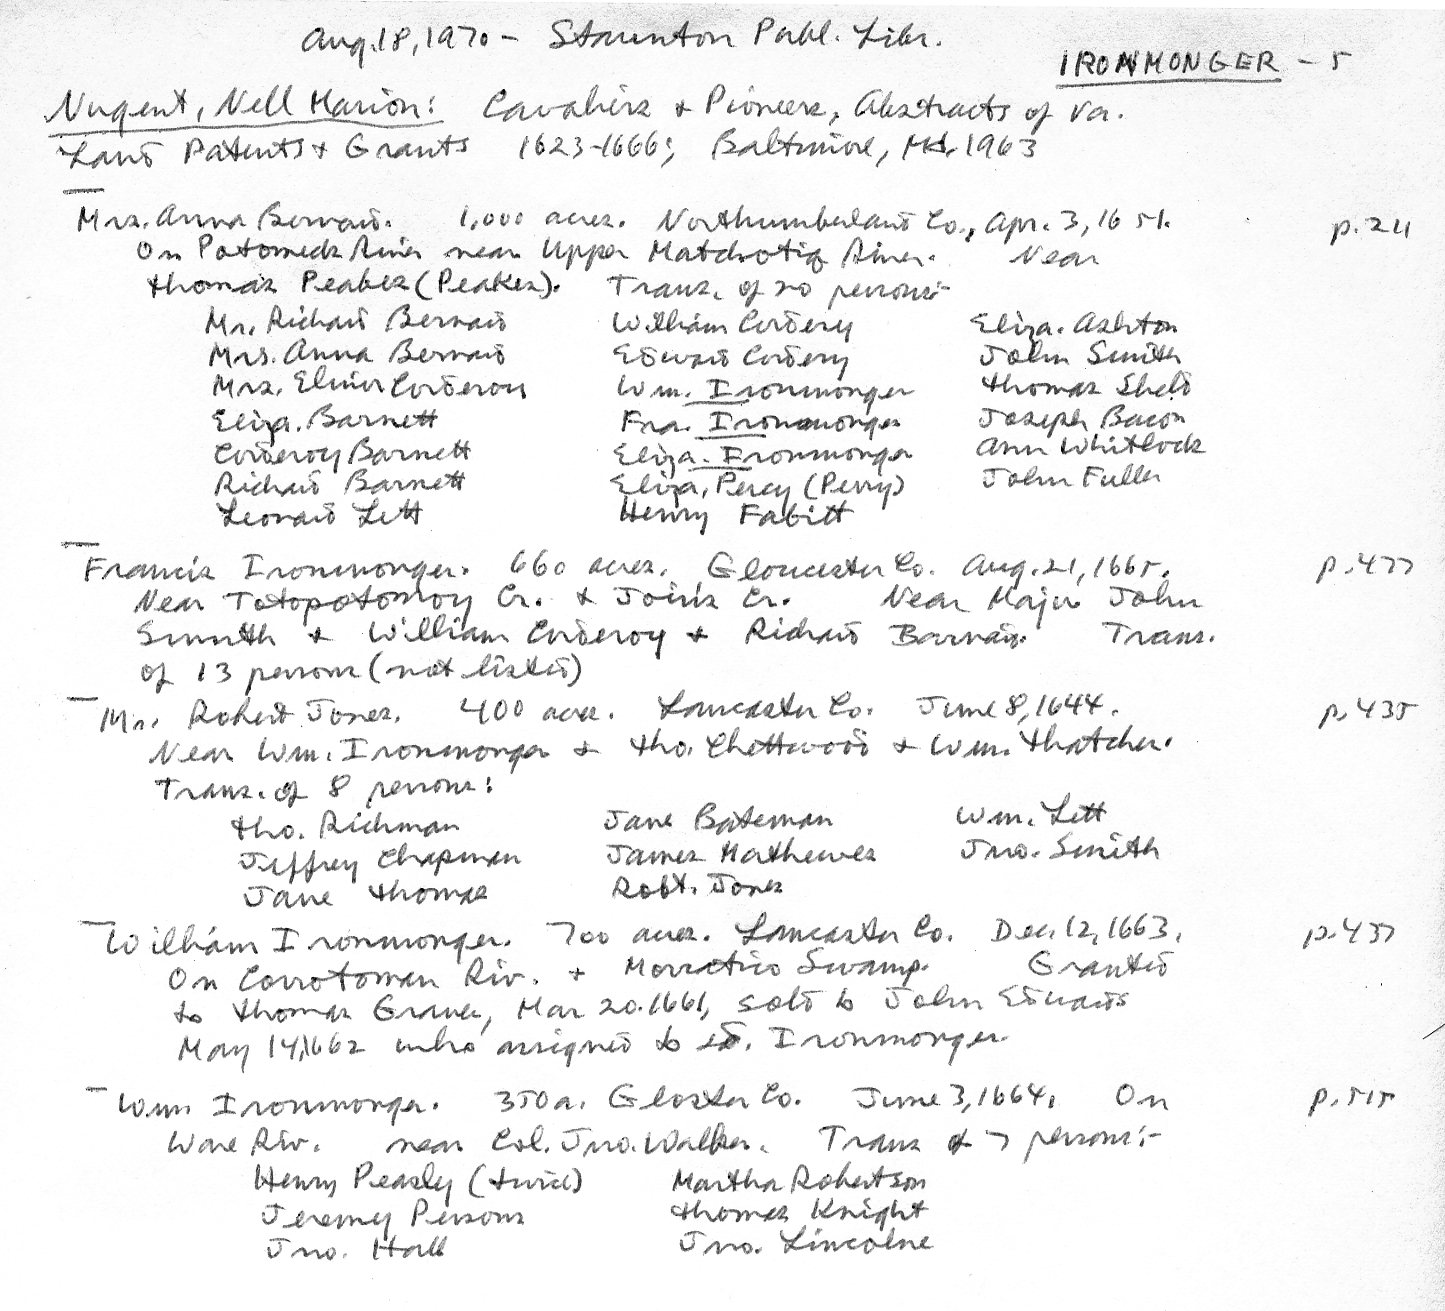 Aug. 18, 1970 - Staunton Publ. Libr.
IRONMONGER - 5
Nugent, Nell Marion: Cavaliers & Pioneers, Abstracts of Va.
Land Patents & Grants 1623-1666; Baltimore, Md. 1963
Mrs. Anna Bernard. 1,000 acres. Northumberland Co., Apr. 3, 1651. p. 211
On Potomeck River near Upper Matchotiq River. Near
Thomas Peakes (Peaker). Trans. of 20 persons:-
Mr. Richard Bernard William Cordery Eliza. Ashton
Mrs. Anna Bernard Edward Cordery John Smith
Mrs. Elinor Corderoy Wm. Ironmonger Thomas Sheld
Eliza. Barnett Fra. Ironmonger Joseph Bacon
Corderoy Barnett Eliza. Ironmonger Ann Whitlock
Richard Barnett Eliza. Percy (Perry) John Fuller
Leonard Lett Henry Fabitt
Francis Ironmonger. 660 acres. Gloucester Co. Aug. 21, 1665. p. 477
Near Totopotomoy Cr. & Joins Cr. Near Major John
Smith & William Corderoy & Richard Barnard. Trans.
of 13 persons (not listed)
Mr. Robert Jones. 400 acres. Lancaster Co. June 8, 1644. p. 435
Near Wm. Ironmonger & Tho. Chettwood & Wm. Thatcher.
Trans. of 8 persons:
Tho. Richman Jane Bateman Wm. Lett
Jeffrey Chapman James Mathewes Jno. Smith
Jane Thomas Robt. Jones
William Ironmonger. 700 acres. Lancaster Co. Dec. 12, 1663. p. 437
On Corrotoman Riv. & Morratico Swamp. Granted
to Thomas Graves, Mar 20. 1661, sold to John Edwards
May 14, 1662 who assigned to sd. Ironmonger.
Wm. Ironmonger. 350 a. Gloster Co. June 3, 1664. On p. 515
Ware Riv. near Col. Jno. Walker. Trans of 7 persons:-
Henry Peasly (twice) Martha Robertson
Jeremy Persons Thomas Knight
Jno. Hall Jno. Lincolne